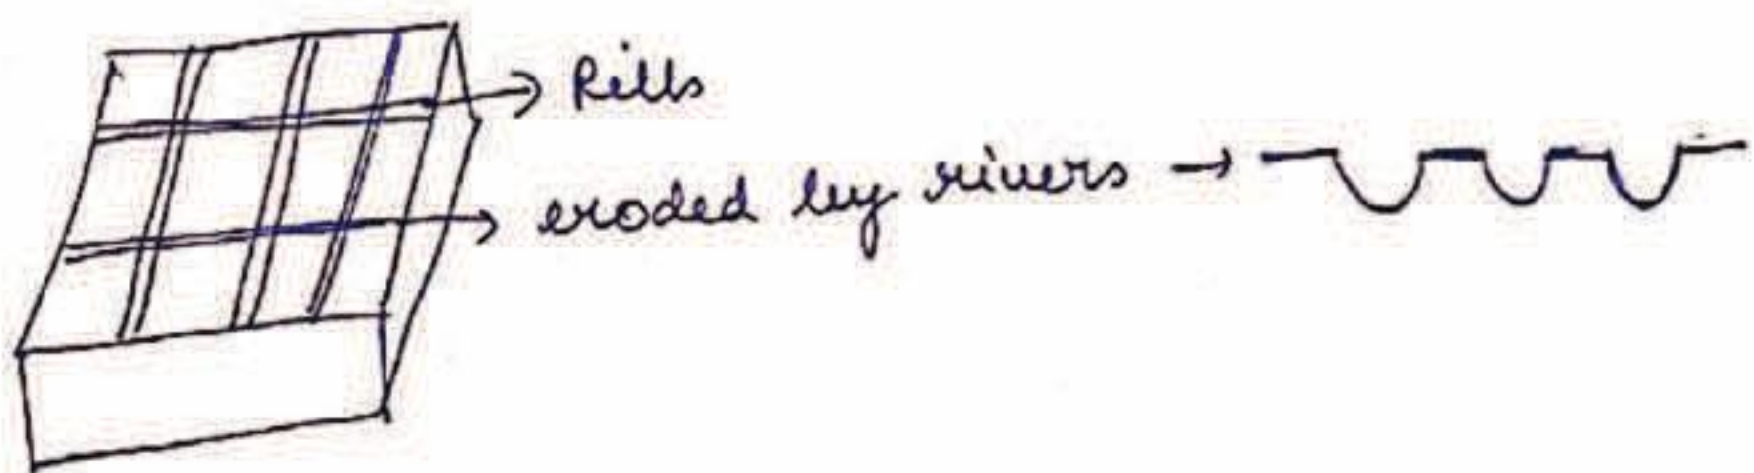 Rills
eroded by rivers